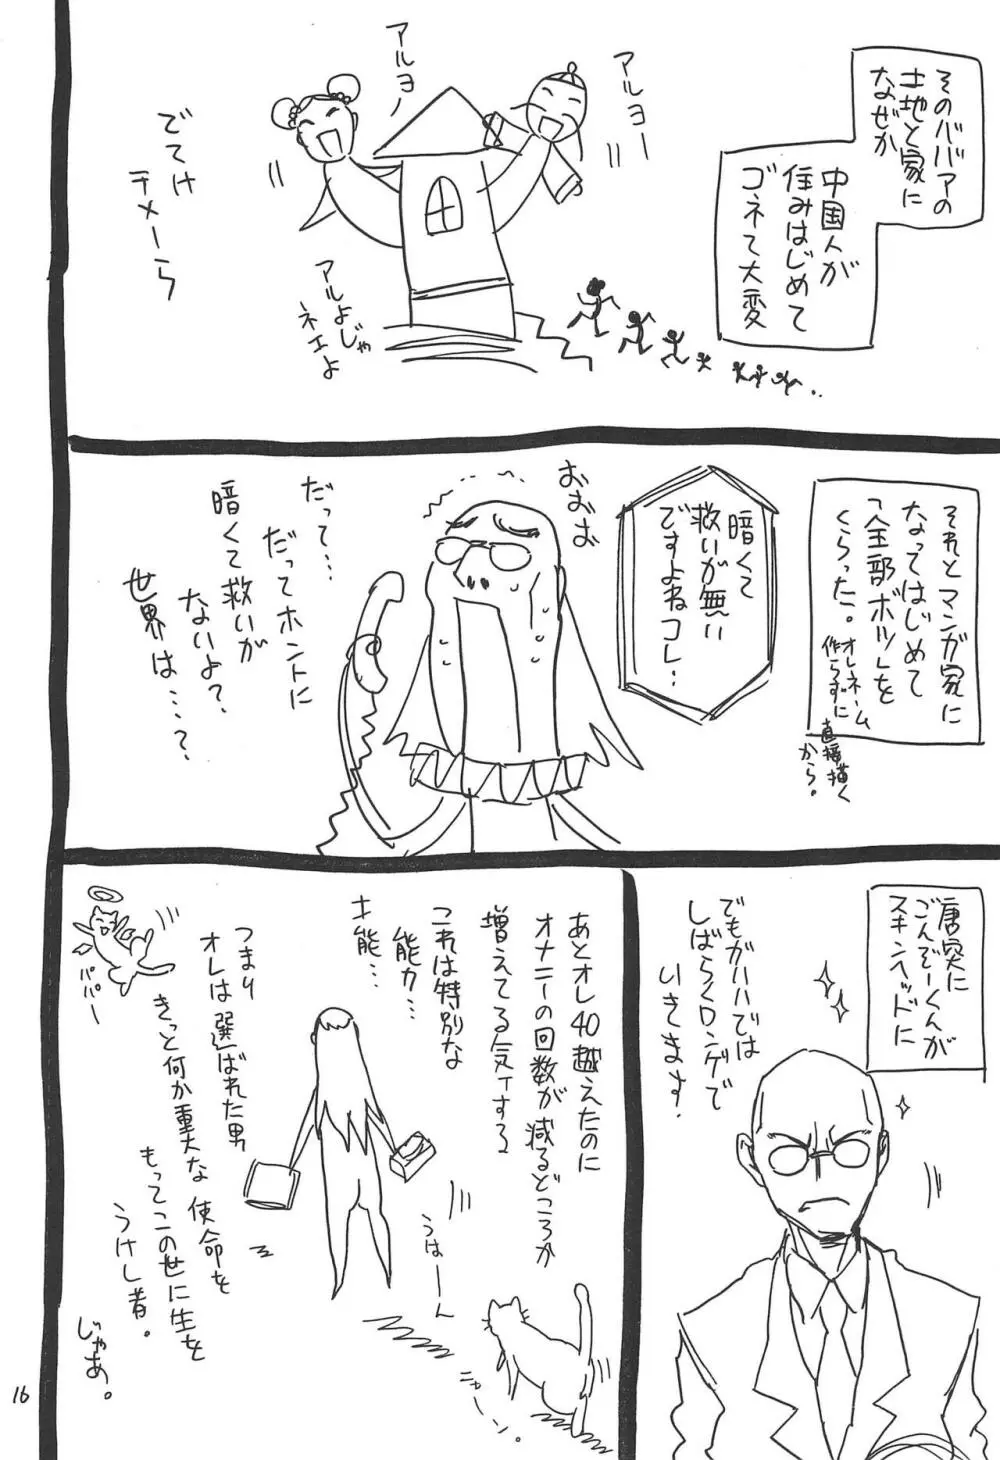 そのババアの
土地と家に
なぜか
中国人が
住みはじめて
ゴネて大変
アルヨー
アルヨー
でてけ
テメーら
アルよじゃ
ネエよ
それとマンガ家に
なってはじめて
「全部ボツ」を
くらった。
オレネーム
作らずに
直接描く
から。
暗くて
救いが無い
ですよねコレ…
おおお
だって…
だってホントに
暗くて救いが
ないよ?
世界は…?
唐突に
ごんざーくんが
スキンヘッドに
でもガハハでは
しばらくロンゲで
いきます!
あとオレ40越えたのに
オナニーの回数が減るどころか
増えてる気ィする
これは特別な
能力…
才能…
うはーん
ニャーン。
つまり
オレは選ばれた男
きっと何か重大な使命を
もってこの世に生を
うけし者。
じゃあ。
パパー
16